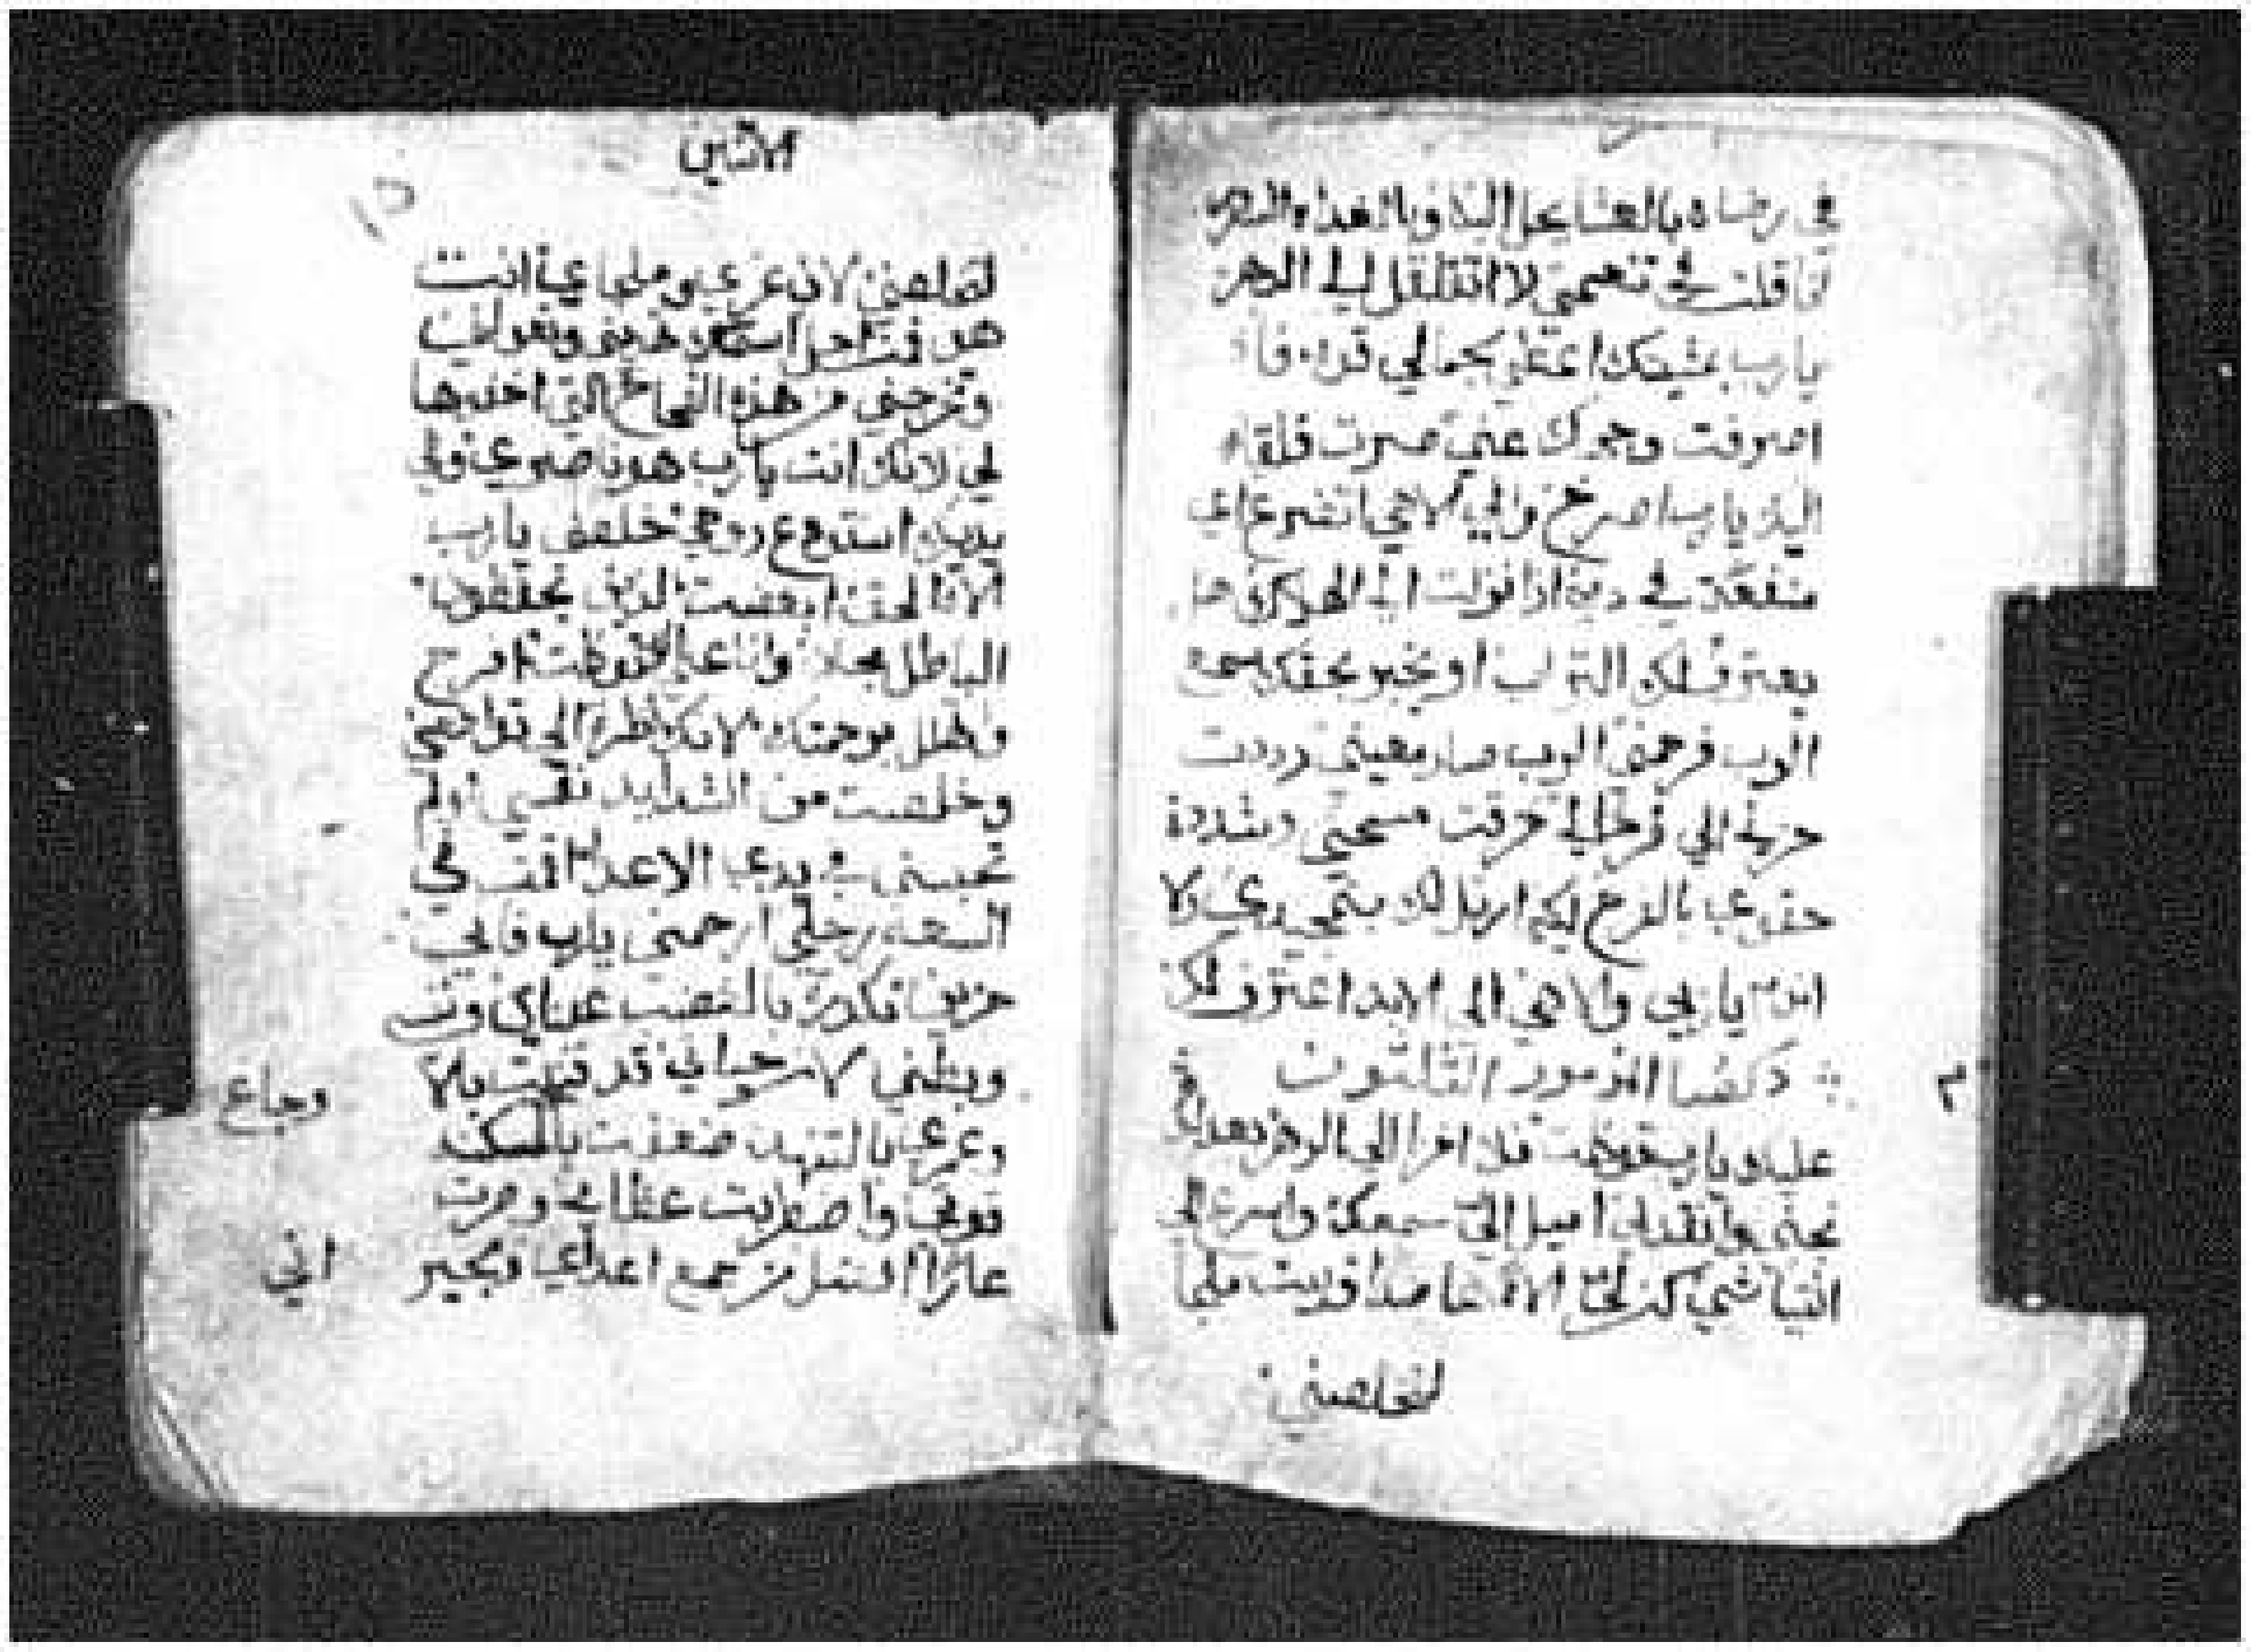 في رضاه بالعشا يحل البكا وبالغداه السرور
انا قلت في تنعمي لا اتقلقل الي الدهر
يا رب بمشيتك اعطيت جمالي قوه
اصرفت وجهك عني صرت قلقا
اليك يا رب اصرخ والي الاهي اتضرع اي
منفعة في دمي اذا نزلت الي الهلاك هل
يعترف لك التراب او يخبر بحقك سمع
الرب فرحمني الرب صار معيني رددت
حزني الي فرح لي خرقت مسحي وشددت
حقوي بالفرح لكي ارتل لك بتمجيدي ولا
اندم يا ربي والاهي الي الابد اعترف لك
المزمور الثلثون
عليك يا رب توكلت فلا اخزا الي الدهر بعدلك
نجني وانقذني اميل الي سمعك واسرع الي
كن لي الاها عاضدا وبيت ملجا
لتخلصني
الاثنين
لتخلصني لان عزي وملجاي انت
هو فمن اجل اسمك تهديني وتعولني
وتخرجني من هذه الفخاخ التي اخفوها
لي لانك انت يا رب هو ناصري وفي
يديك استودع روحي خلصني يا رب
الاه الحق ابغضت الذين يحفظون
الباطل مجانا وانا علي الرب توكلت افرح
واهلل برحمتك لانك نظرت الي تواضعي
وخلصت من الشدايد نفسي ولم
تحبسني في يدي الاعدا اقمت في
السعه رجلي ارحمني يا رب فاني
حزين تكدرت بالغضب عيناي ونفسي
وبطني لان حياتي قد فنيت بالاوجاع
وعمري بالتنهد ضعفت بالمسكنه
قوتي واضطربت عظامي وصرت
عارا افضل من جميع اعداي وبجيراني